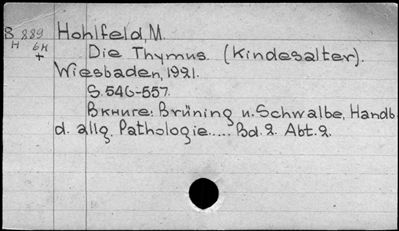 S 889 Hohlfeld, M.
H 6H Die Thymus. (Kindesalter).
+
Wiesbaden, 1921.
S. 546-557.
Вкниге: Brüning u. Schwalbe, Handb.
d. allg. Pathologie..... Bd. 2. Abt. 2.